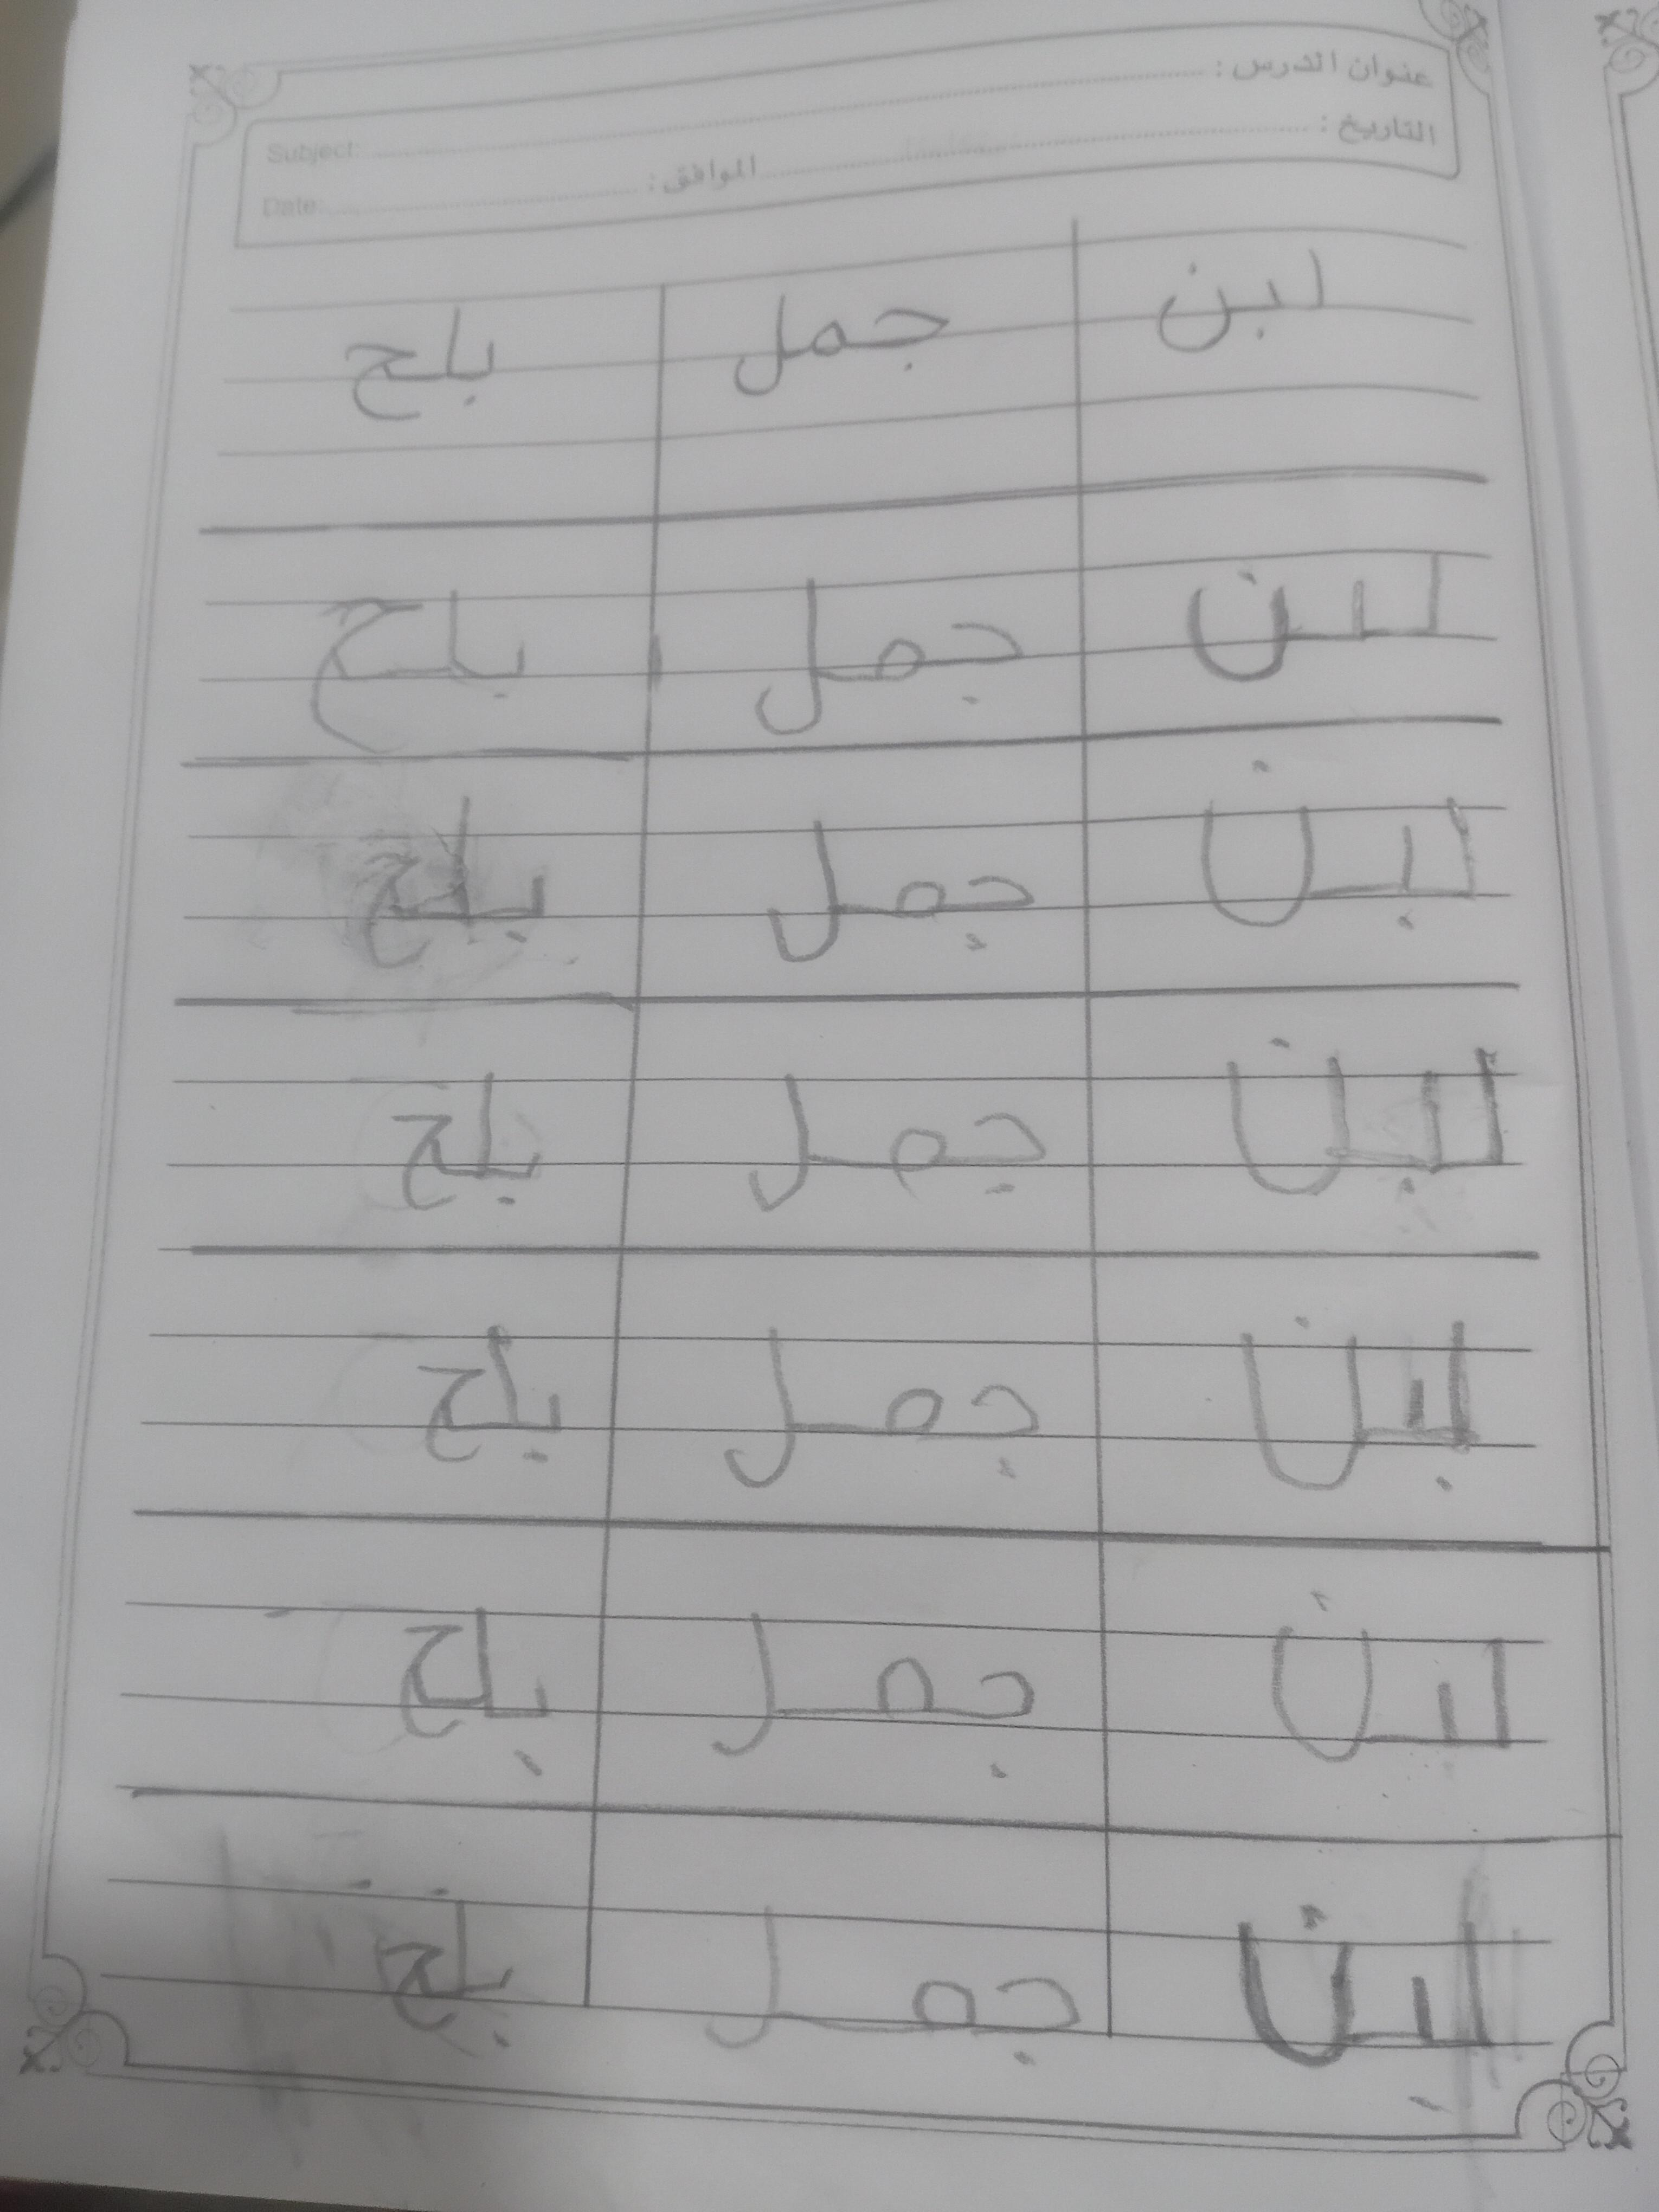 عنوان الدرس :
Subject:
التاريخ : الموافق :
Date:
لبن جمل بلح
لبن جمل بلح
لبن جمل بلح
لبن جمل بلح
لبن جمل بلح
لبن جمل بلح
لبن جمل بلح